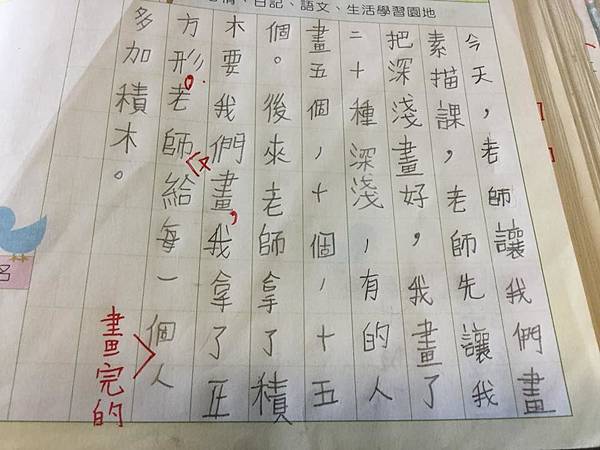 情、日記、語文、生活學習園地
今天，老師讓我們畫
素描課，老師先讓我
把深淺畫好，我畫了
二十種深淺，有的人
畫五個，十個，十五
個。後來老師拿了積
木要我們畫，我拿了正
方形。老師又給每一個人
畫完的
多加積木。
名